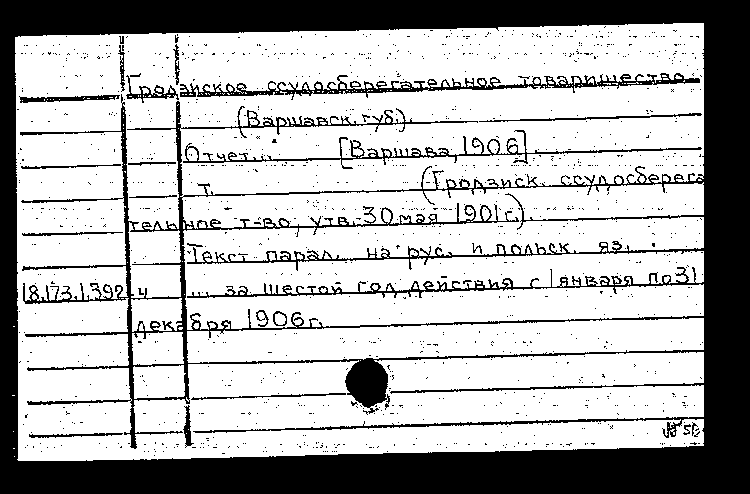 Гродзиское ссудосберегательное товарищество
(Варшавск. губ.).
Отчет... [Варшава, 1906].
т. (Гродзиск. ссудосберега
тельное т-во, утв. 30 мая 1901 г.).
Текст парал. на рус. и польск. яз.
18.173.1.392 ч ... за шестой год действия с 1 января по 31
декабря 1906 г.